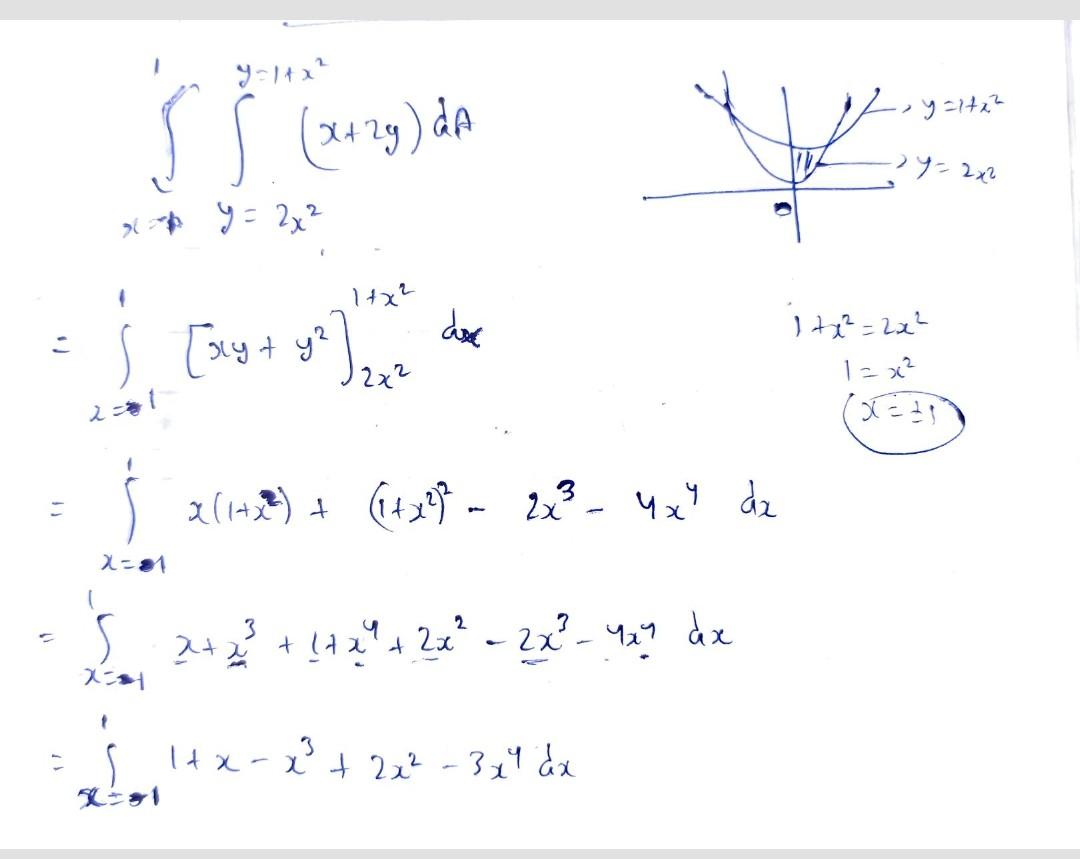 ∫_{x=-1}^{1} ∫_{y=2x²}^{y=1+x²} (x+2y) dA
→ y=1+x²
→ y=2x²
= ∫_{x=-1}^{1} [xy + y²]_{2x²}^{1+x²} dx
1+x² = 2x²
1 = x²
x = ±1
= ∫_{x=-1}^{1} x(1+x²) + (1+x²)² - 2x³ - 4x⁴ dx
= ∫_{x=-1}^{1} x+x³ + 1+x⁴ + 2x² - 2x³ - 4x⁴ dx
= ∫_{x=-1}^{1} 1+x - x³ + 2x² - 3x⁴ dx